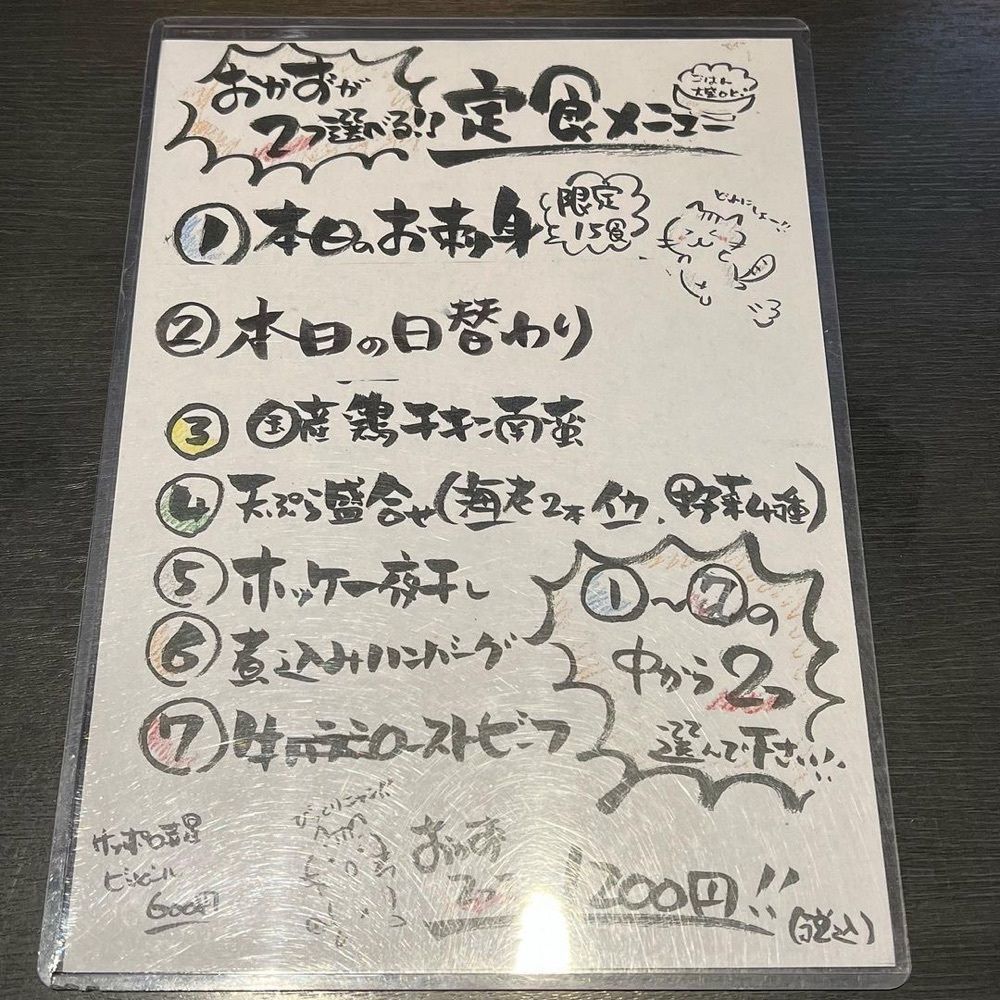 おかずが
2つ選べる!!
定食メニュー
ごはん
大盛OK!
① 本日のお刺身
限定
15食
どれにしよー!!
② 本日の日替わり
③ 国産鶏チキン南蛮
④ 天ぷら盛合せ(海老2本イカ、野菜4種)
⑤ ホッケ一夜干し
⑥ 煮込みハンバーグ
⑦ ローストビーフ
①～⑦の
中から2つ
選んで下さい!!
びっくりニャン!!
サッポロ赤星
ビンビール
600円
おかず
2つ
1200円!!
(税込)